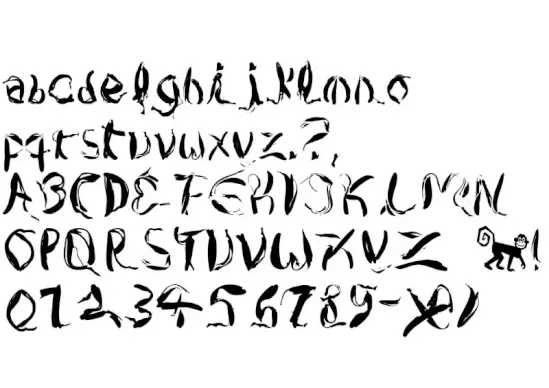 abcdefghijklmno
pqrstuvwxyz.?,
ABCDEFGHIJKLMN
OPQRSTUVWXYZ !
0123456789-